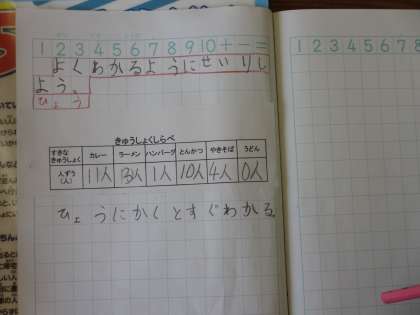 1 2 3 4 5 6 7 8 9 10 + − =
1 2 3 4 5 6 7 8
よくわかるようにせいりし
よう。
ひょう
きゅうしょくしらべ
すきなきゅうしょく カレー ラーメン ハンバーグ とんかつ やきそば うどん
人ずう(人) 11人 13人 1人 10人 4人 0人
ひょうにかくとすぐわかる